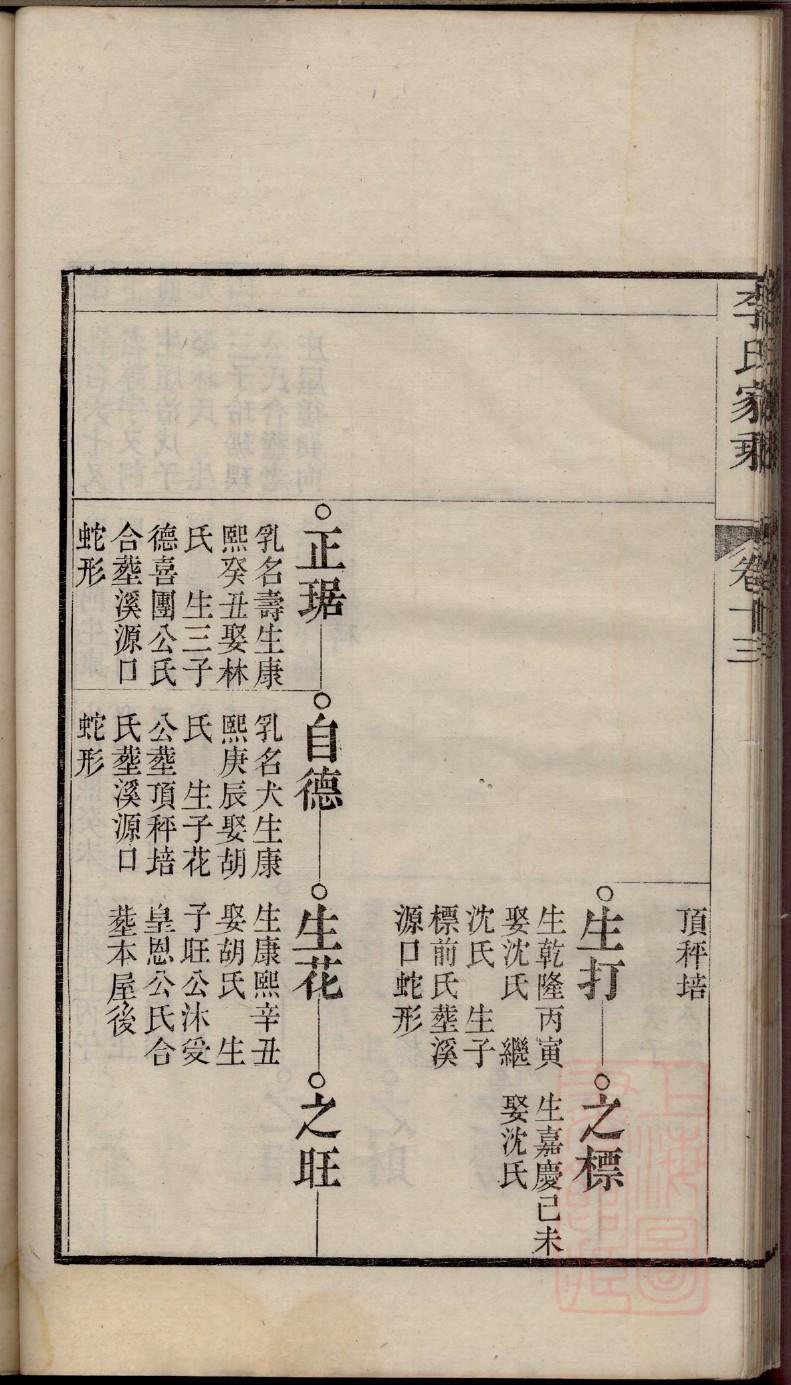 李氏家乘
卷十三
頂秤培
生打
生乾隆丙寅
娶沈氏　繼
沈氏　生子
標前氏塟溪
源口蛇形
之標
生嘉慶己未
娶沈氏
正琚
乳名壽生康
熙癸丑娶林
氏　生三子
德喜團公氏
合塟溪源口
蛇形
自德
乳名犬生康
熙庚辰娶胡
氏　生子花
公塟頂秤培
氏塟溪源口
蛇形
生花
生康熙辛丑
娶胡氏　生
子旺公沐受
皇恩公氏合
塟本屋後
之旺